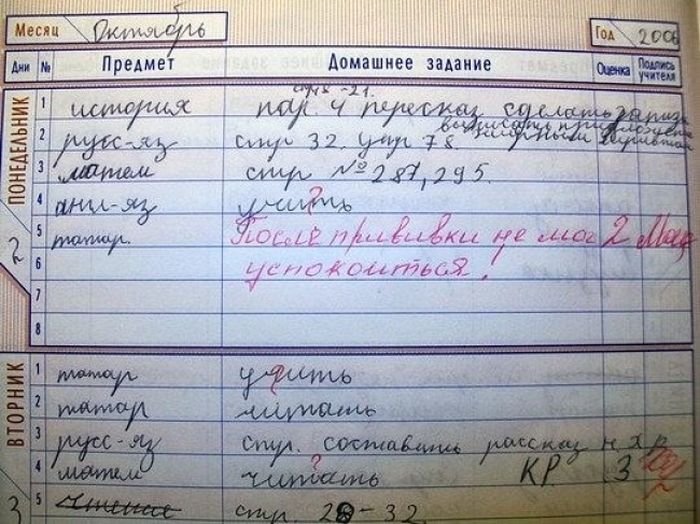 Месяц Октябрь Год 2006
Дни № Предмет Домашнее задание Оценка Подпись учителя
ПОНЕДЕЛЬНИК 2
стр -21.
1 история пар. 4 пересказ сделать
выписать
2 русс-яз стр 32. упр 78
3 матем стр № 287, 295.
4 англ-яз учить ?
5 татар. После прививки не мог 2
6 успокоиться!
7
8
ВТОРНИК 3
1 татар учить
2 татар читать
3 русс-яз стр. составить рассказ
4 матем читать ? КР 3
5 чтение стр. 28-32.